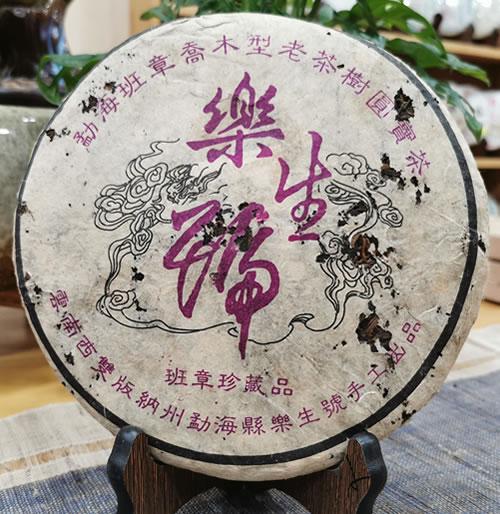 勐海班章喬木型老茶樹圓寶茶
樂生號
班章珍藏品
雲南西雙版納州勐海縣樂生號手工品